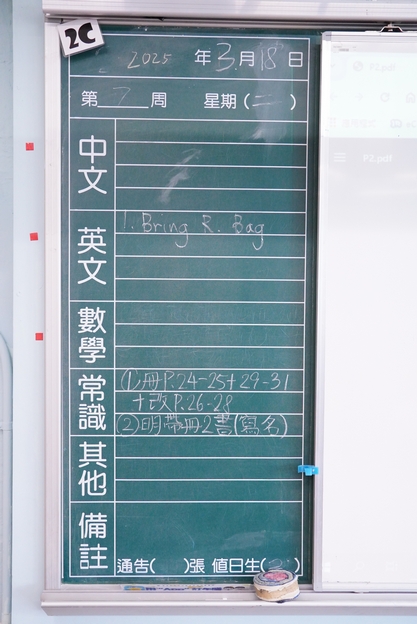 2C
2025 年 3 月 18 日
第 7 周 星期 (二)
中文
英文
1. Bring R. Bag
數學
常識
(1)冊P.24-25+29-31
+改P.26-28
(2)明帶冊2書(寫名)
其他
備註
通告( )張 值日生( )
P2.pdf